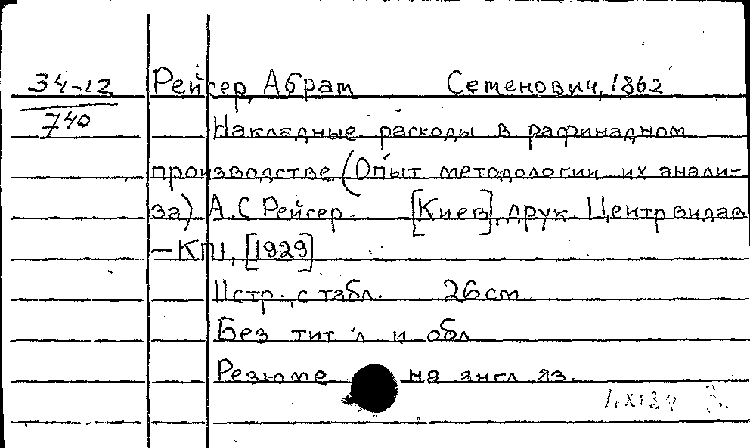 34-12 Рейсер, Абрам Семенович, 1862
740 Накладные расходы в рафинадном
производстве (Опыт методологии их анали-
за). А.С Рейсер. [Киев], друк. Центрвидав
-КПІ, [1929]
11 стр., с табл. 26 см
Без тит. л. и обл
Резюме на англ яз.